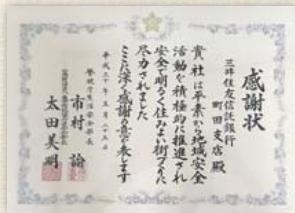 感謝状
三井住友信託銀行
町田支店殿
貴社は平素から地域安全
活動を積極的に推進され
安全で明るく住みよい街づくりに
尽力されました
ここに深く感謝の意を表します
平成三十年五月二十五日
警視庁生活安全部長
市村諭
太田美明